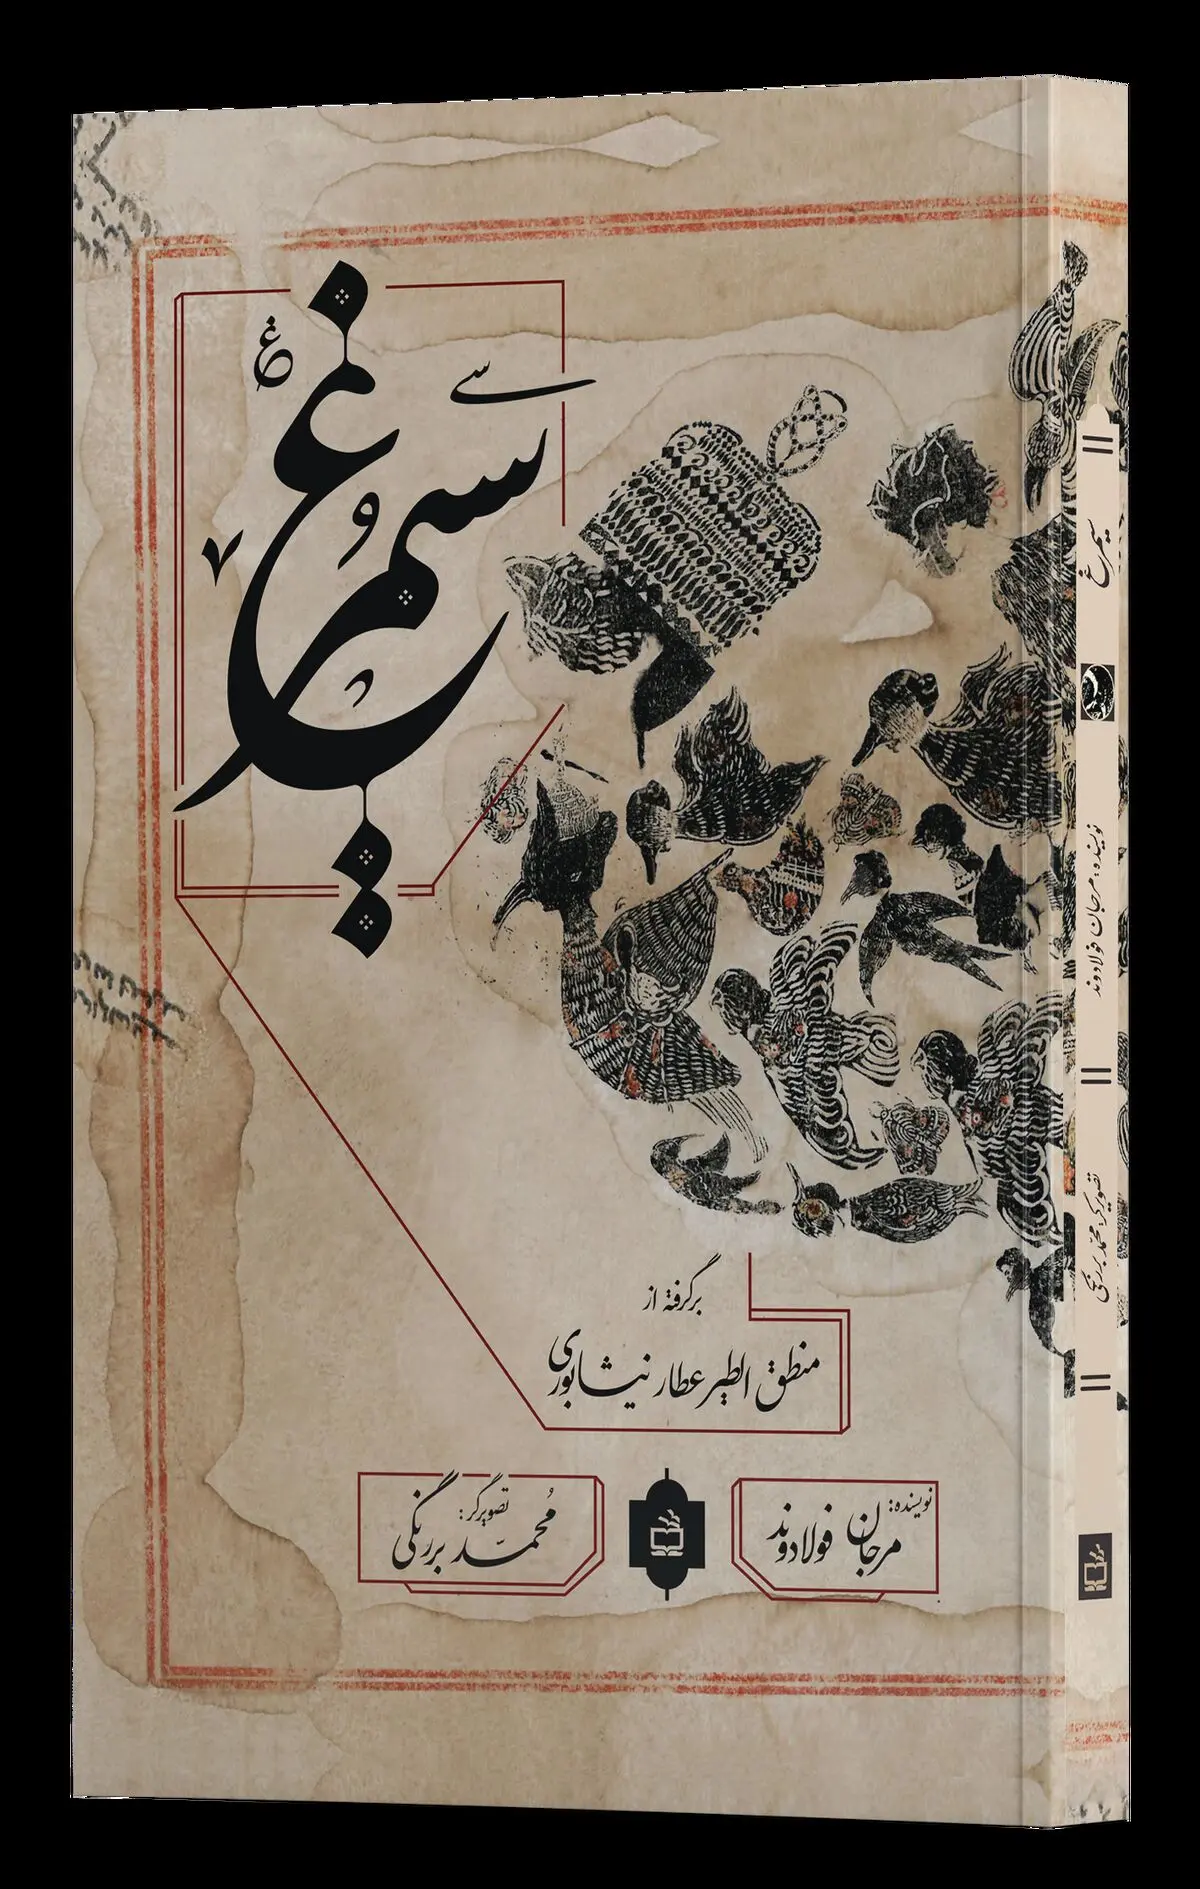 سیمرغ
برگرفته از
منطق الطیر عطار نیشابوری
نویسنده:
مرجان فولادوند
تصویرگر:
مُحمّد بررنگی
سیمرغ
نویسنده: مرجان فولادوند
تصویرگر: محمّد بررنگی